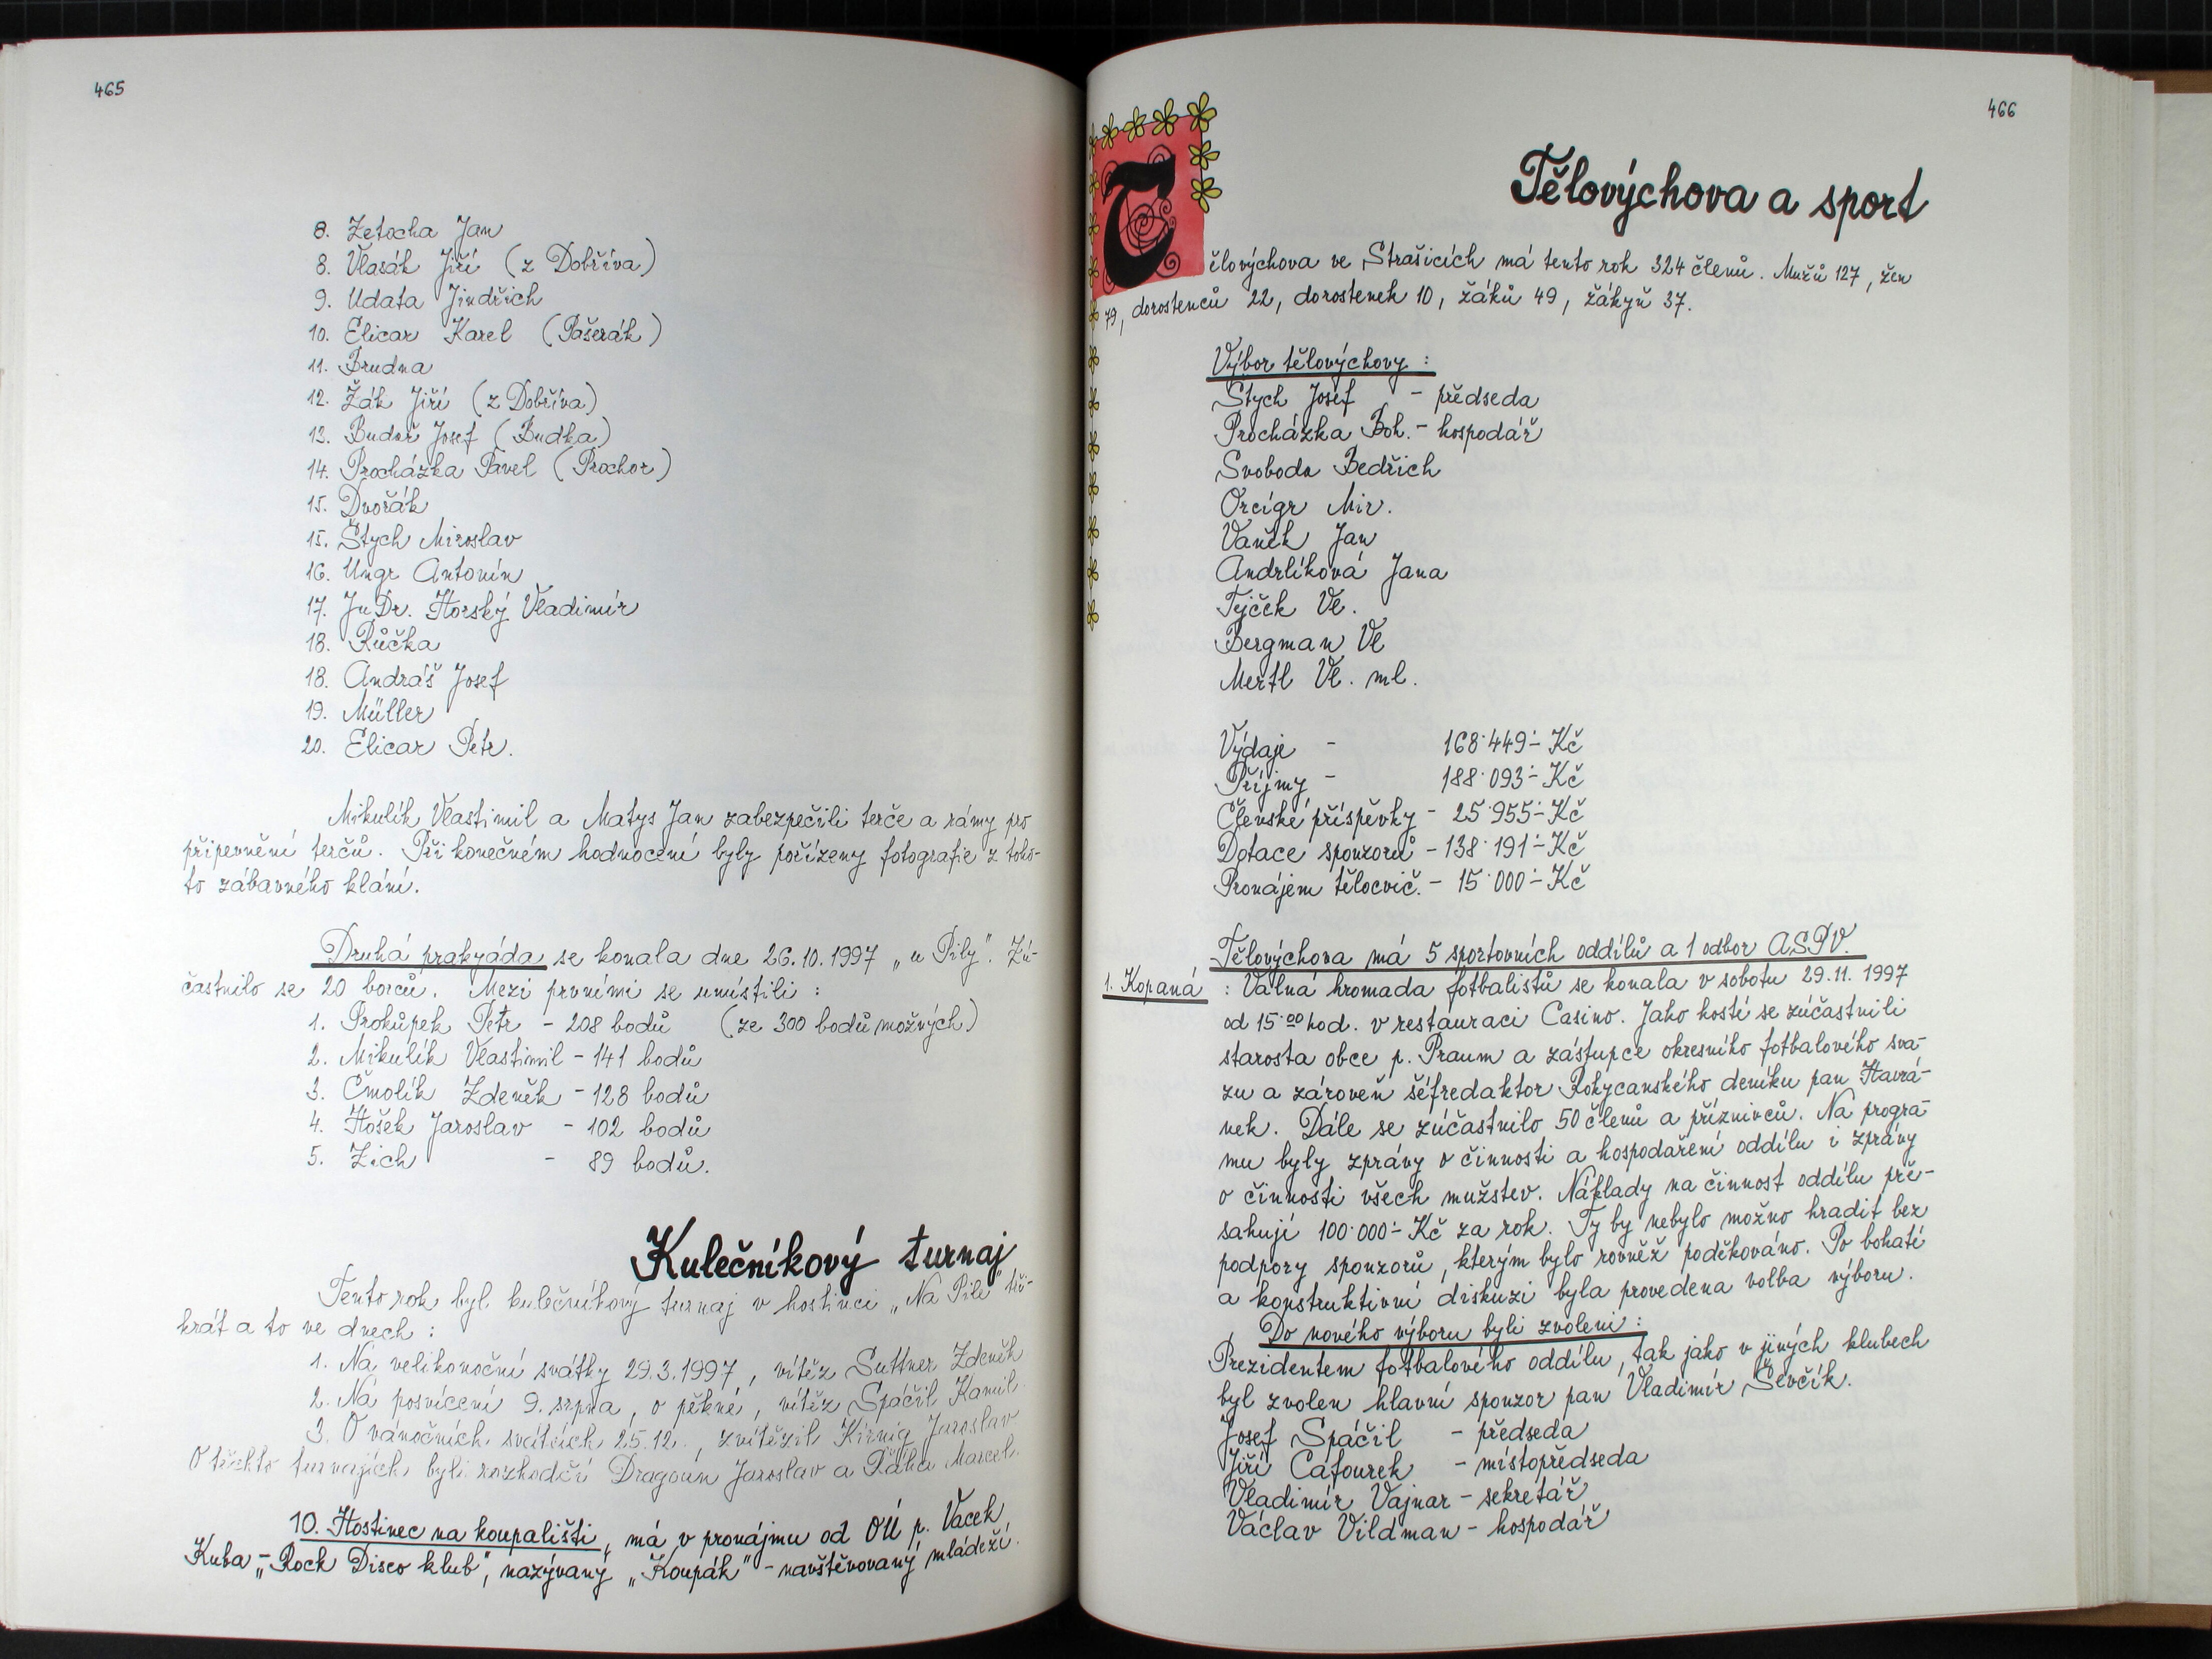 465
8. Zetocha Jan
8. Vlasák Jiří (z Dobříva)
9. Udata Jindřich
10. Elicar Karel (Pašerák)
11. Brudna
12. Žák Jiří (z Dobříva)
13. Budař Josef (Budka)
14. Procházka Pavel (Prochor)
15. Dvořák
15. Štych Miroslav
16. Ungr Antonín
17. JuDr. Horský Vladimír
18. Růčka
18. Andráš Josef
19. Müller
20. Elicar Petr.
Mikulík Vlastimil a Matys Jan zabezpečili terče a rámy pro
připevnění terčů. Při konečném hodnocení byly pořízeny fotografie z toho-
to zábavného klání.
Druhá prakyáda se konala dne 26.10.1997 „u Pily". Zú-
častnilo se 20 borců. Mezi prvními se umístili :
1. Prokůpek Petr - 208 bodů (ze 300 bodů možných)
2. Mikulík Vlastimil - 141 bodů
3. Čmolík Zdeněk - 128 bodů
4. Hošek Jaroslav - 102 bodů
5. Zich - 89 bodů.
Kulečníkový turnaj
Tento rok byl kulečníkový turnaj v hostinci „Na Pile" tři-
krát a to ve dnech :
1. Na velikonoční svátky 29.3.1997, vítěz Suttner Zdeněk
2. Na posvícení 9. srpna, o pěkné, vítěz Spáčil Kamil.
3. O vánočních svátcích 25.12., zvítězil Kirnig Jaroslav
O těchto turnajích byli rozhodčí Dragoun Jaroslav a Páha Marcel.
10. Hostinec na koupališti, má v pronájmu od OÚ p. Vacek
Kuba - „Rock Disco klub", nazývaný „Koupák" - navštěvovaný mládeží.
466
Tělovýchova a sport
Tělovýchova ve Strašicích má tento rok 324 členů. Mužů 127, žen
79, dorostenců 22, dorostenek 10, žáků 49, žákyň 37.
Výbor tělovýchovy :
Štych Josef - předseda
Procházka Boh. - hospodář
Svoboda Bedřich
Orcígr Mir.
Vaněk Jan
Andrlíková Jana
Tejček Vl.
Bergman Vl
Mertl Vl. ml.
Výdaje - 168˙449.- Kč
Příjmy - 188˙093.- Kč
Členské příspěvky - 25˙955.- Kč
Dotace sponzorů - 138˙191.- Kč
Pronájem tělocvič. - 15˙000.- Kč
Tělovýchova má 5 sportovních oddílů a 1 odbor ASPV.
1. Kopaná : Valná hromada fotbalistů se konala v sobotu 29.11.1997
od 15.00 hod. v restauraci Casino. Jako hosté se zúčastnili
starosta obce p. Praum a zástupce okresního fotbalového sva-
zu a zároveň šéfredaktor Rokycanského deníku pan Havrá-
nek. Dále se zúčastnilo 50 členů a příznivců. Na progra-
mu byly zprávy o činnosti a hospodaření oddílu i zprávy
o činnosti všech mužstev. Náklady na činnost oddílu pře-
sahují 100˙000.- Kč za rok. Ty by nebylo možno hradit bez
podpory sponzorů, kterým bylo rovněž poděkováno. Po bohaté
a konstruktivní diskuzi byla provedena volba výboru.
Do nového výboru byli zvoleni :
Prezidentem fotbalového oddílu, tak jako v jiných klubech
byl zvolen hlavní sponzor pan Vladimír Ševčík.
Josef Spáčil - předseda
Jiří Cafourek - místopředseda
Vladimír Vajnar - sekretář
Václav Vildman - hospodář